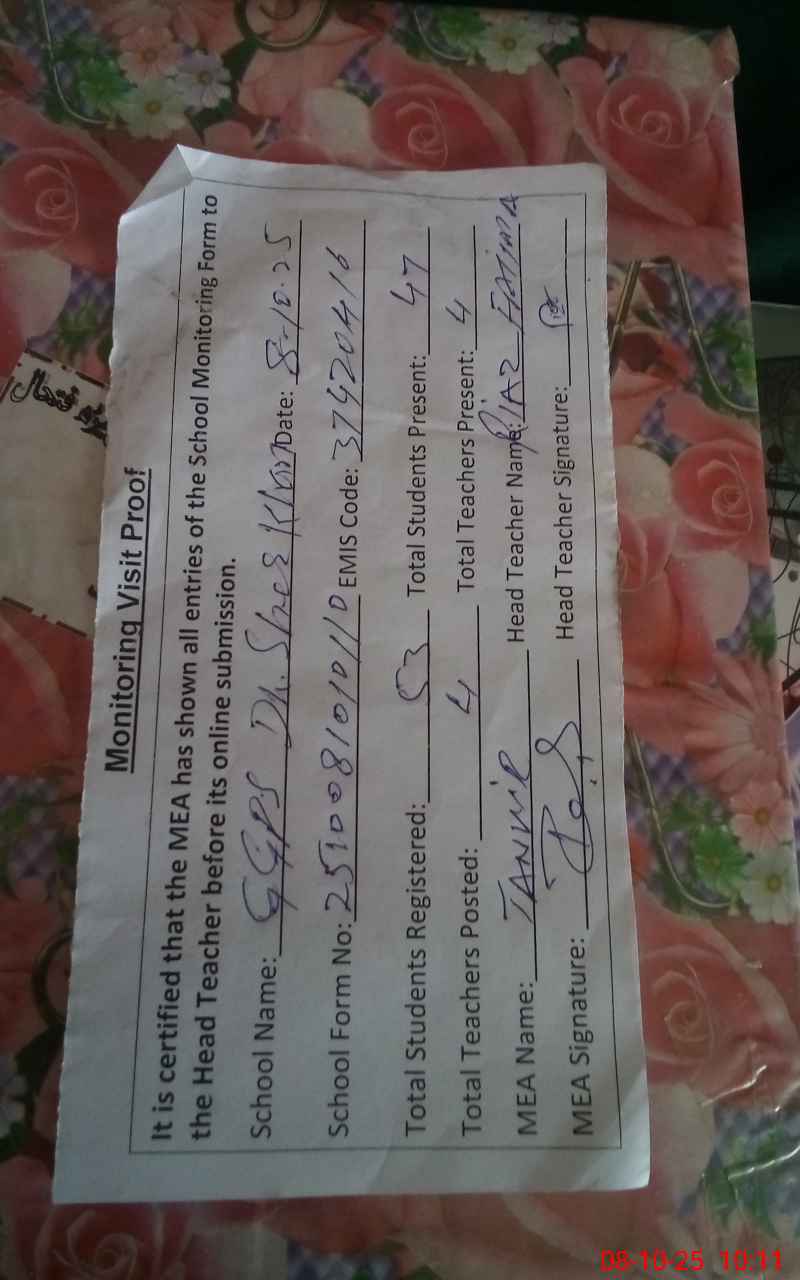 Monitoring Visit Proof
It is certified that the MEA has shown all entries of the School Monitoring Form to
the Head Teacher before its online submission.
School Name: GGPS Dh. Sher Khan Date: 8-10-25
School Form No: 2510081010110 EMIS Code: 37420416
Total Students Registered: 53 Total Students Present: 47
Total Teachers Posted: 4 Total Teachers Present: 4
MEA Name: TANVIR Head Teacher Name: RIAZ FATIMA
MEA Signature: Head Teacher Signature:
08-10-25 10:11